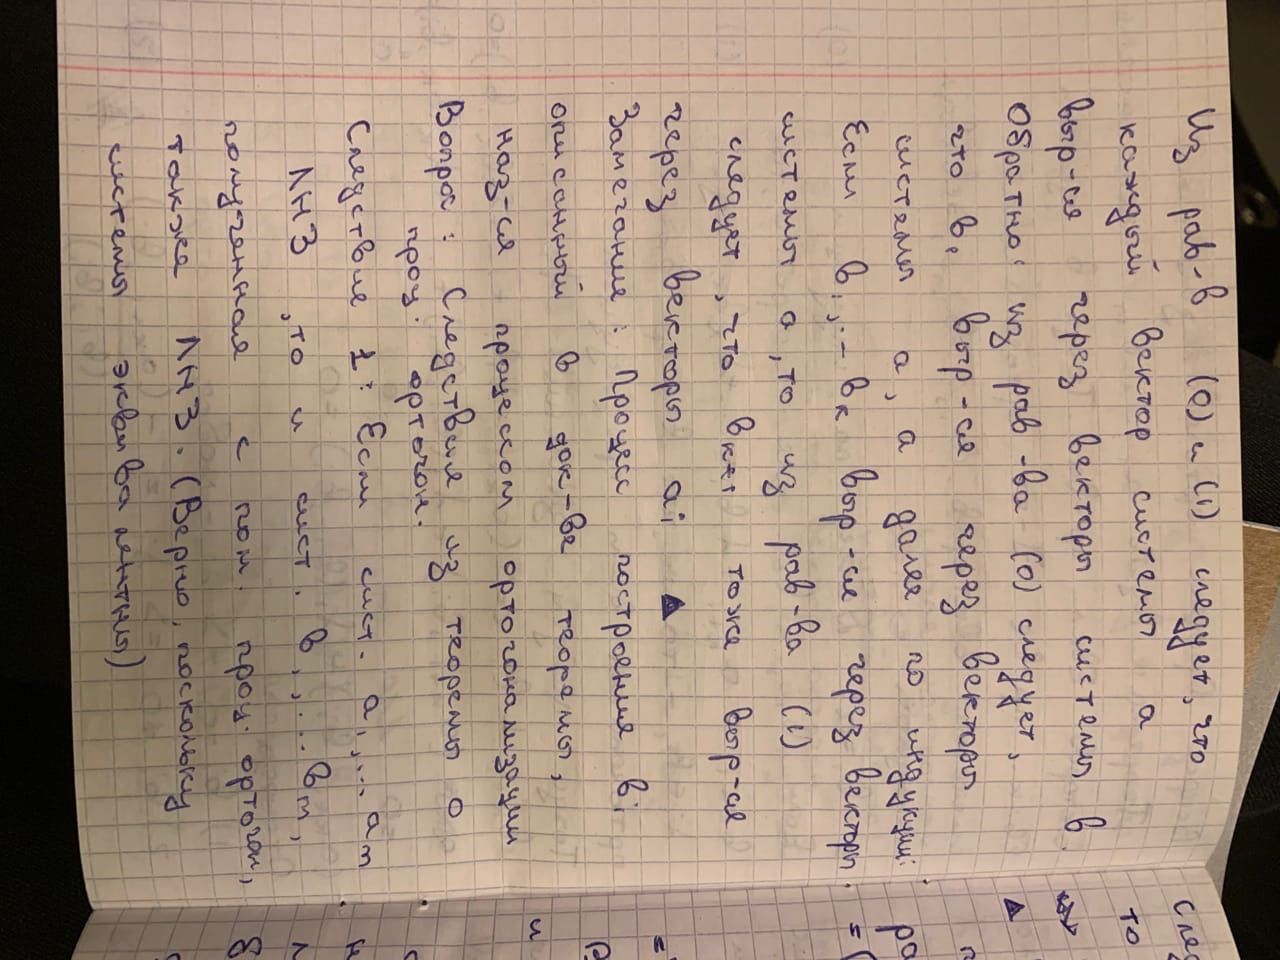 Из рав-в (0) и (1) следует, что
каждый вектор системы а
выр-ся через векторы системы в.
Обратно: из рав-ва (0) следует,
что в₁ выр-ся через векторы
системы а, а далее по индукции:
Если в₁,.. вк выр-ся через векторы
системы а, то из рав-ва (1)
следует, что вк+1 тоже выр-ся
через векторы аi ▲
Замечание: Процесс построения вi
описанный в док-ве теоремы,
наз-ся процессом ортогонализации
Вопрос: Следствия из теоремы о
проц. ортогон.
Следствие 1: Если сист. а₁,... аm
ЛНЗ, то и сист. в₁,... вm,
полученная с пом. проц. ортогон,
также ЛНЗ. (Верно, поскольку
системы эквивалентны)
след
то
▲
ра
= (
=
и
н
л
8